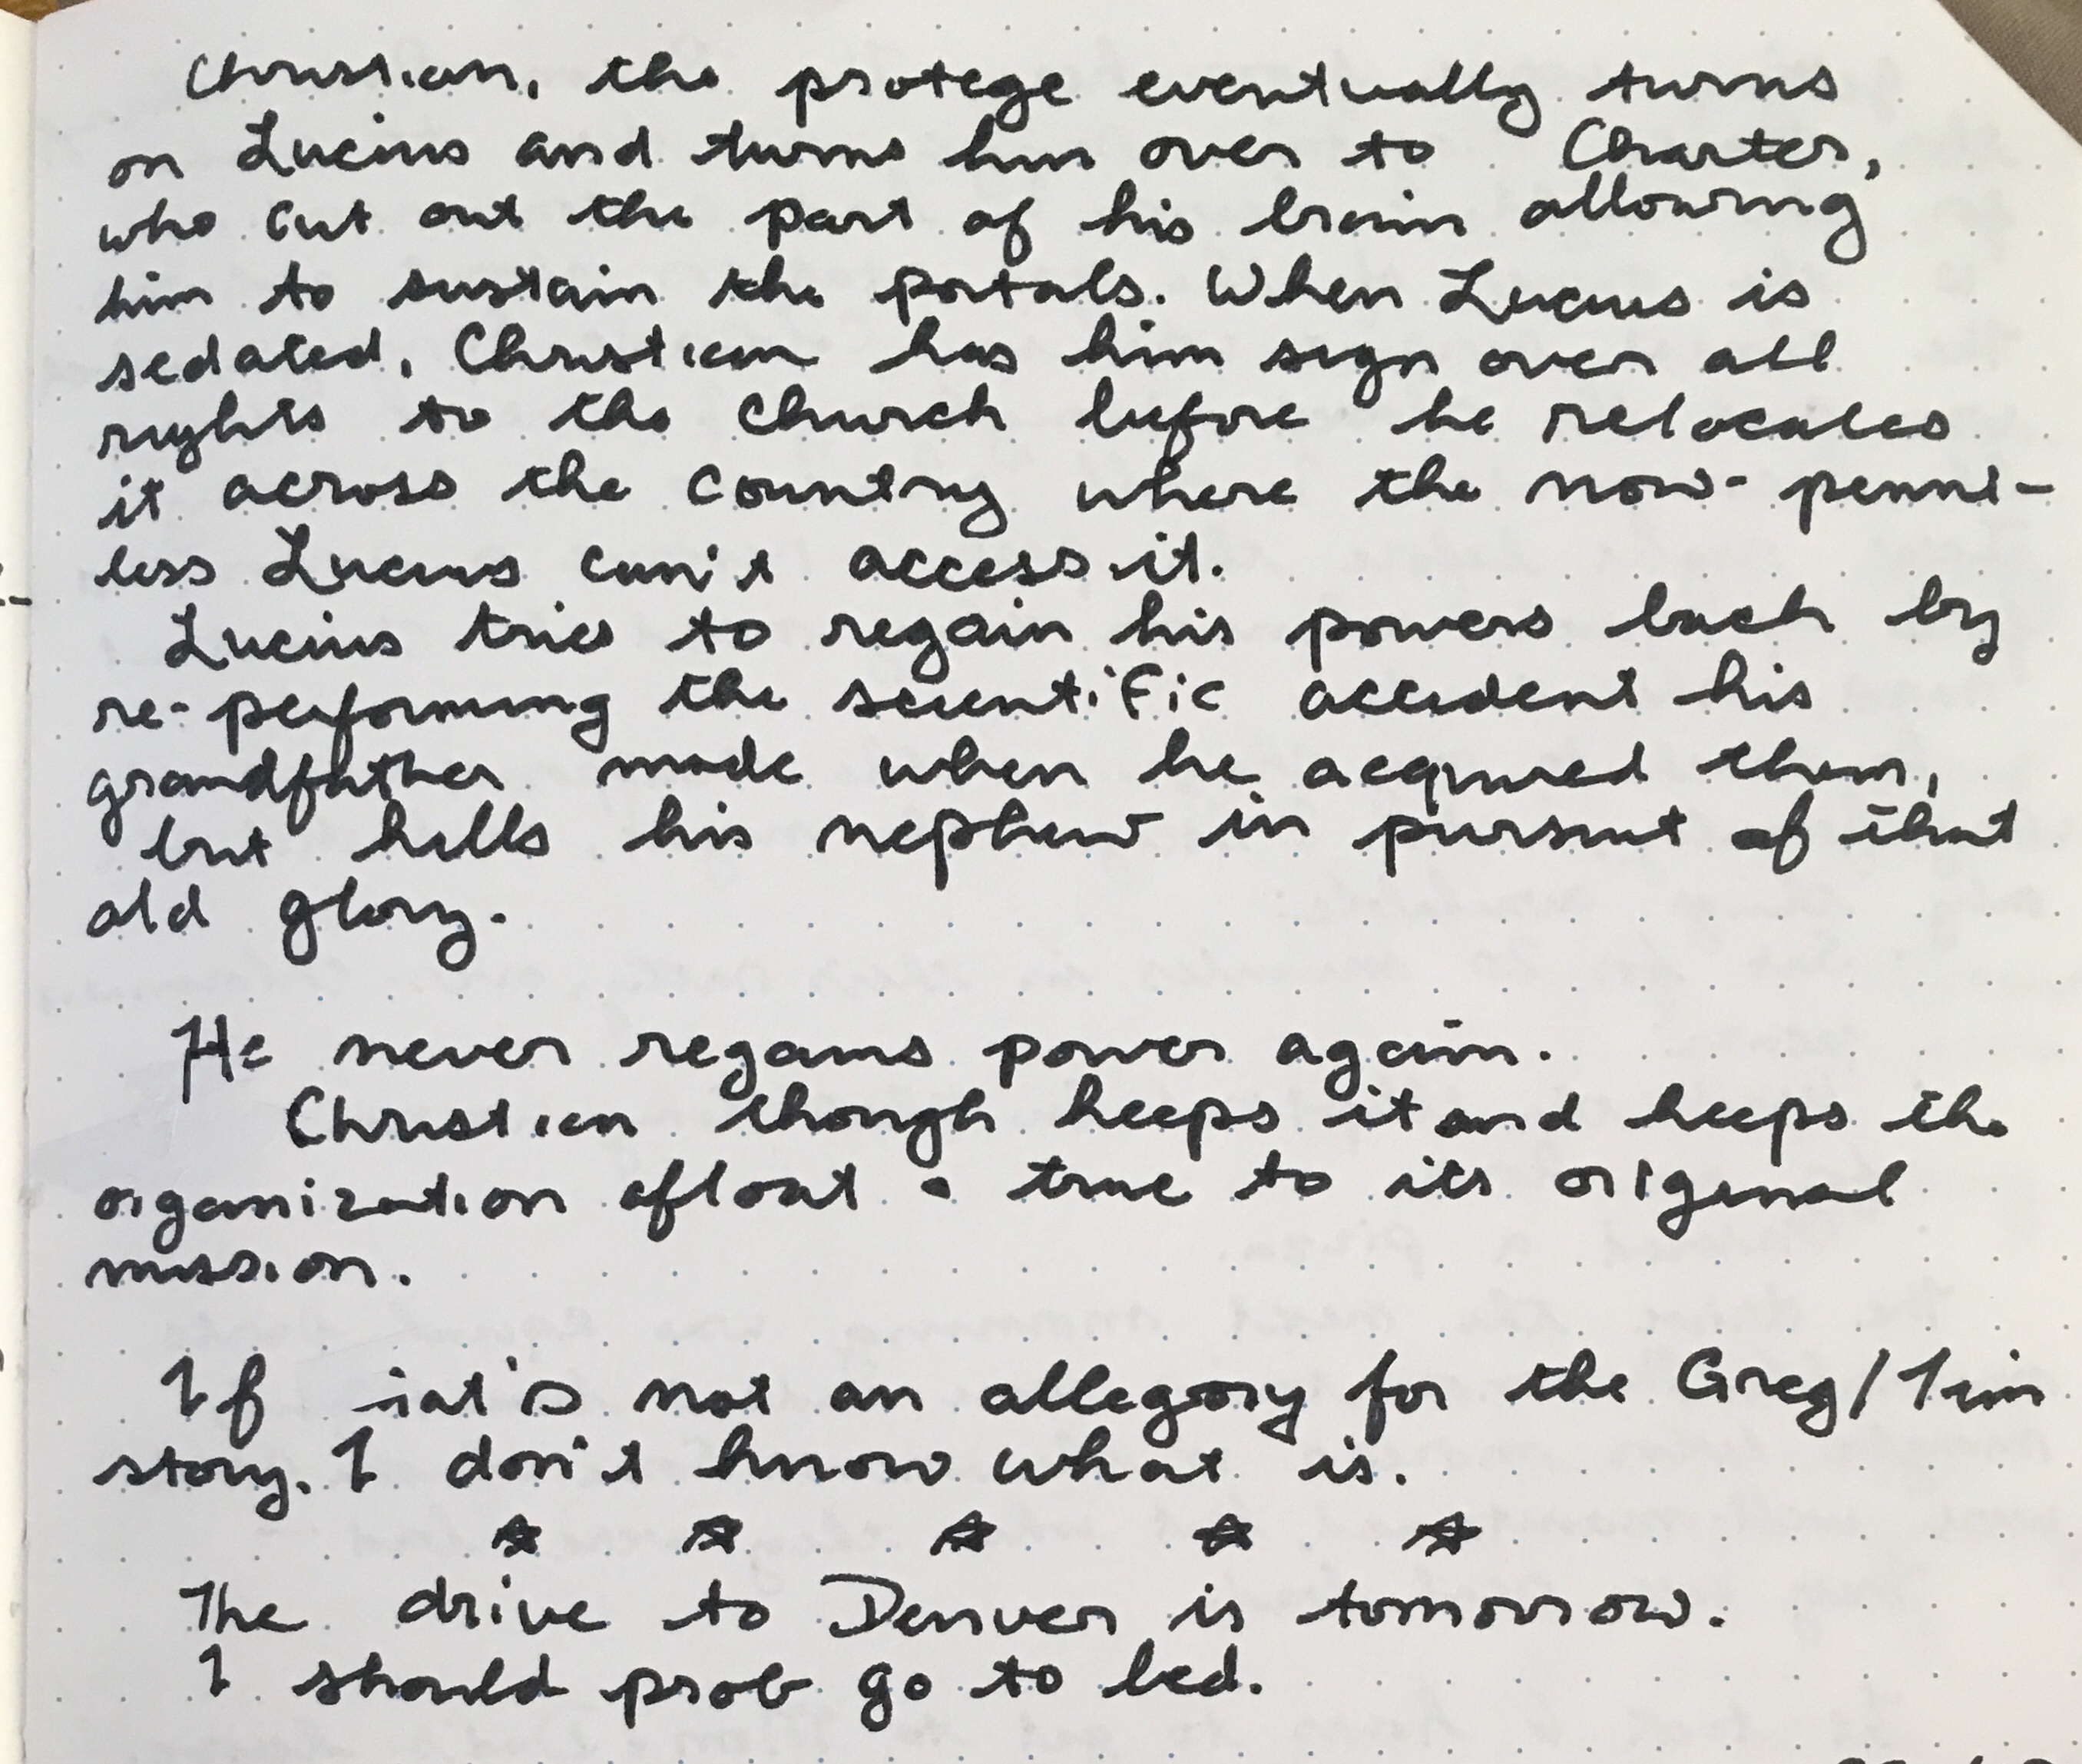 Christian, the protege eventually turns
on Lucius and turns him over to Charter,
who cut out the part of his brain allowing
him to sustain the portals. When Lucius is
sedated, Christian has him sign over all
rights to the church before he relocates
it across the country where the now-penni-
less Lucius can't access it.
Lucius tries to regain his powers back by
re-performing the scientific accident his
grandfather made when he acquired them,
but kills his nephew in pursuit of that
old glory.
He never regains power again.
Christian though keeps it and keeps the
organization afloat • true to its original
mission.
If iat's not an allegory for the Greg/Tim
story. I don't know what is.
☆ ☆ ☆ ☆ ☆
The drive to Denver is tomorrow.
I should prob go to bed.